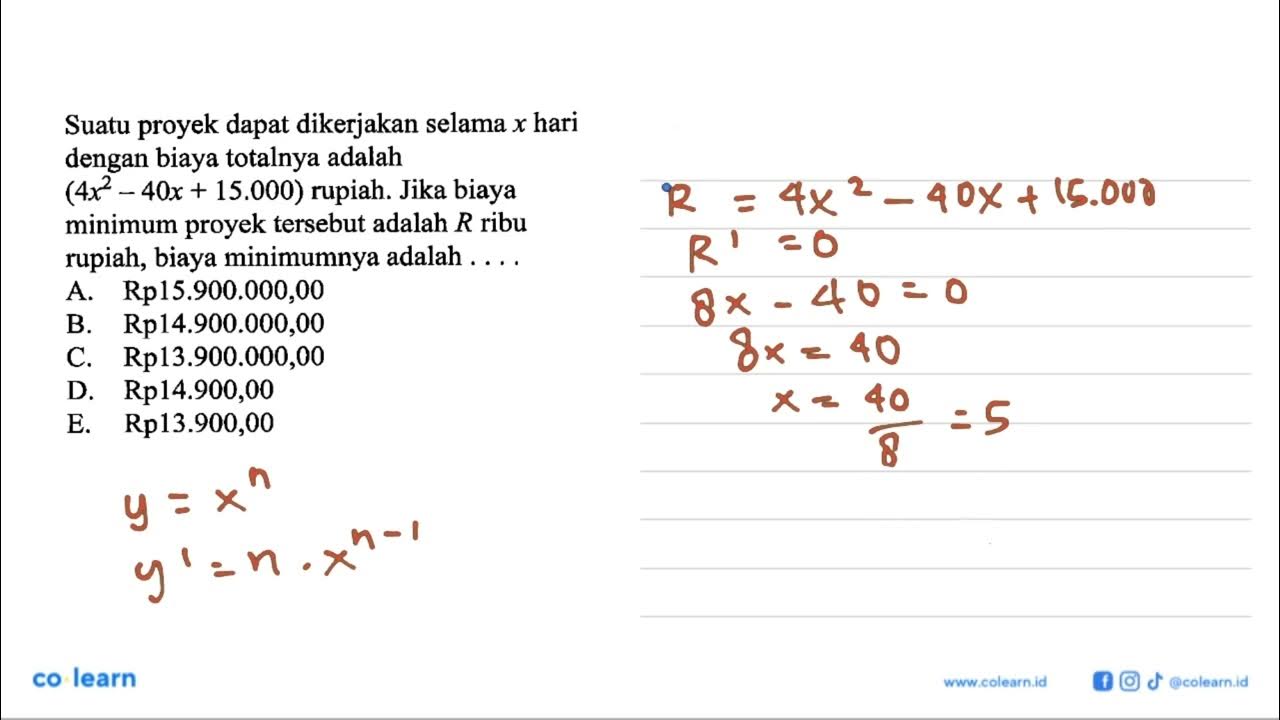 Suatu proyek dapat dikerjakan selama x hari
dengan biaya totalnya adalah
(4x² – 40x + 15.000) rupiah. Jika biaya
minimum proyek tersebut adalah R ribu
rupiah, biaya minimumnya adalah . . . .
A. Rp15.900.000,00
B. Rp14.900.000,00
C. Rp13.900.000,00
D. Rp14.900,00
E. Rp13.900,00
y = xⁿ
y' = n · xⁿ⁻¹
R = 4x² – 40x + 15.000
R' = 0
8x – 40 = 0
8x = 40
x = 40/8 = 5
co learn
www.colearn.id
@colearn.id